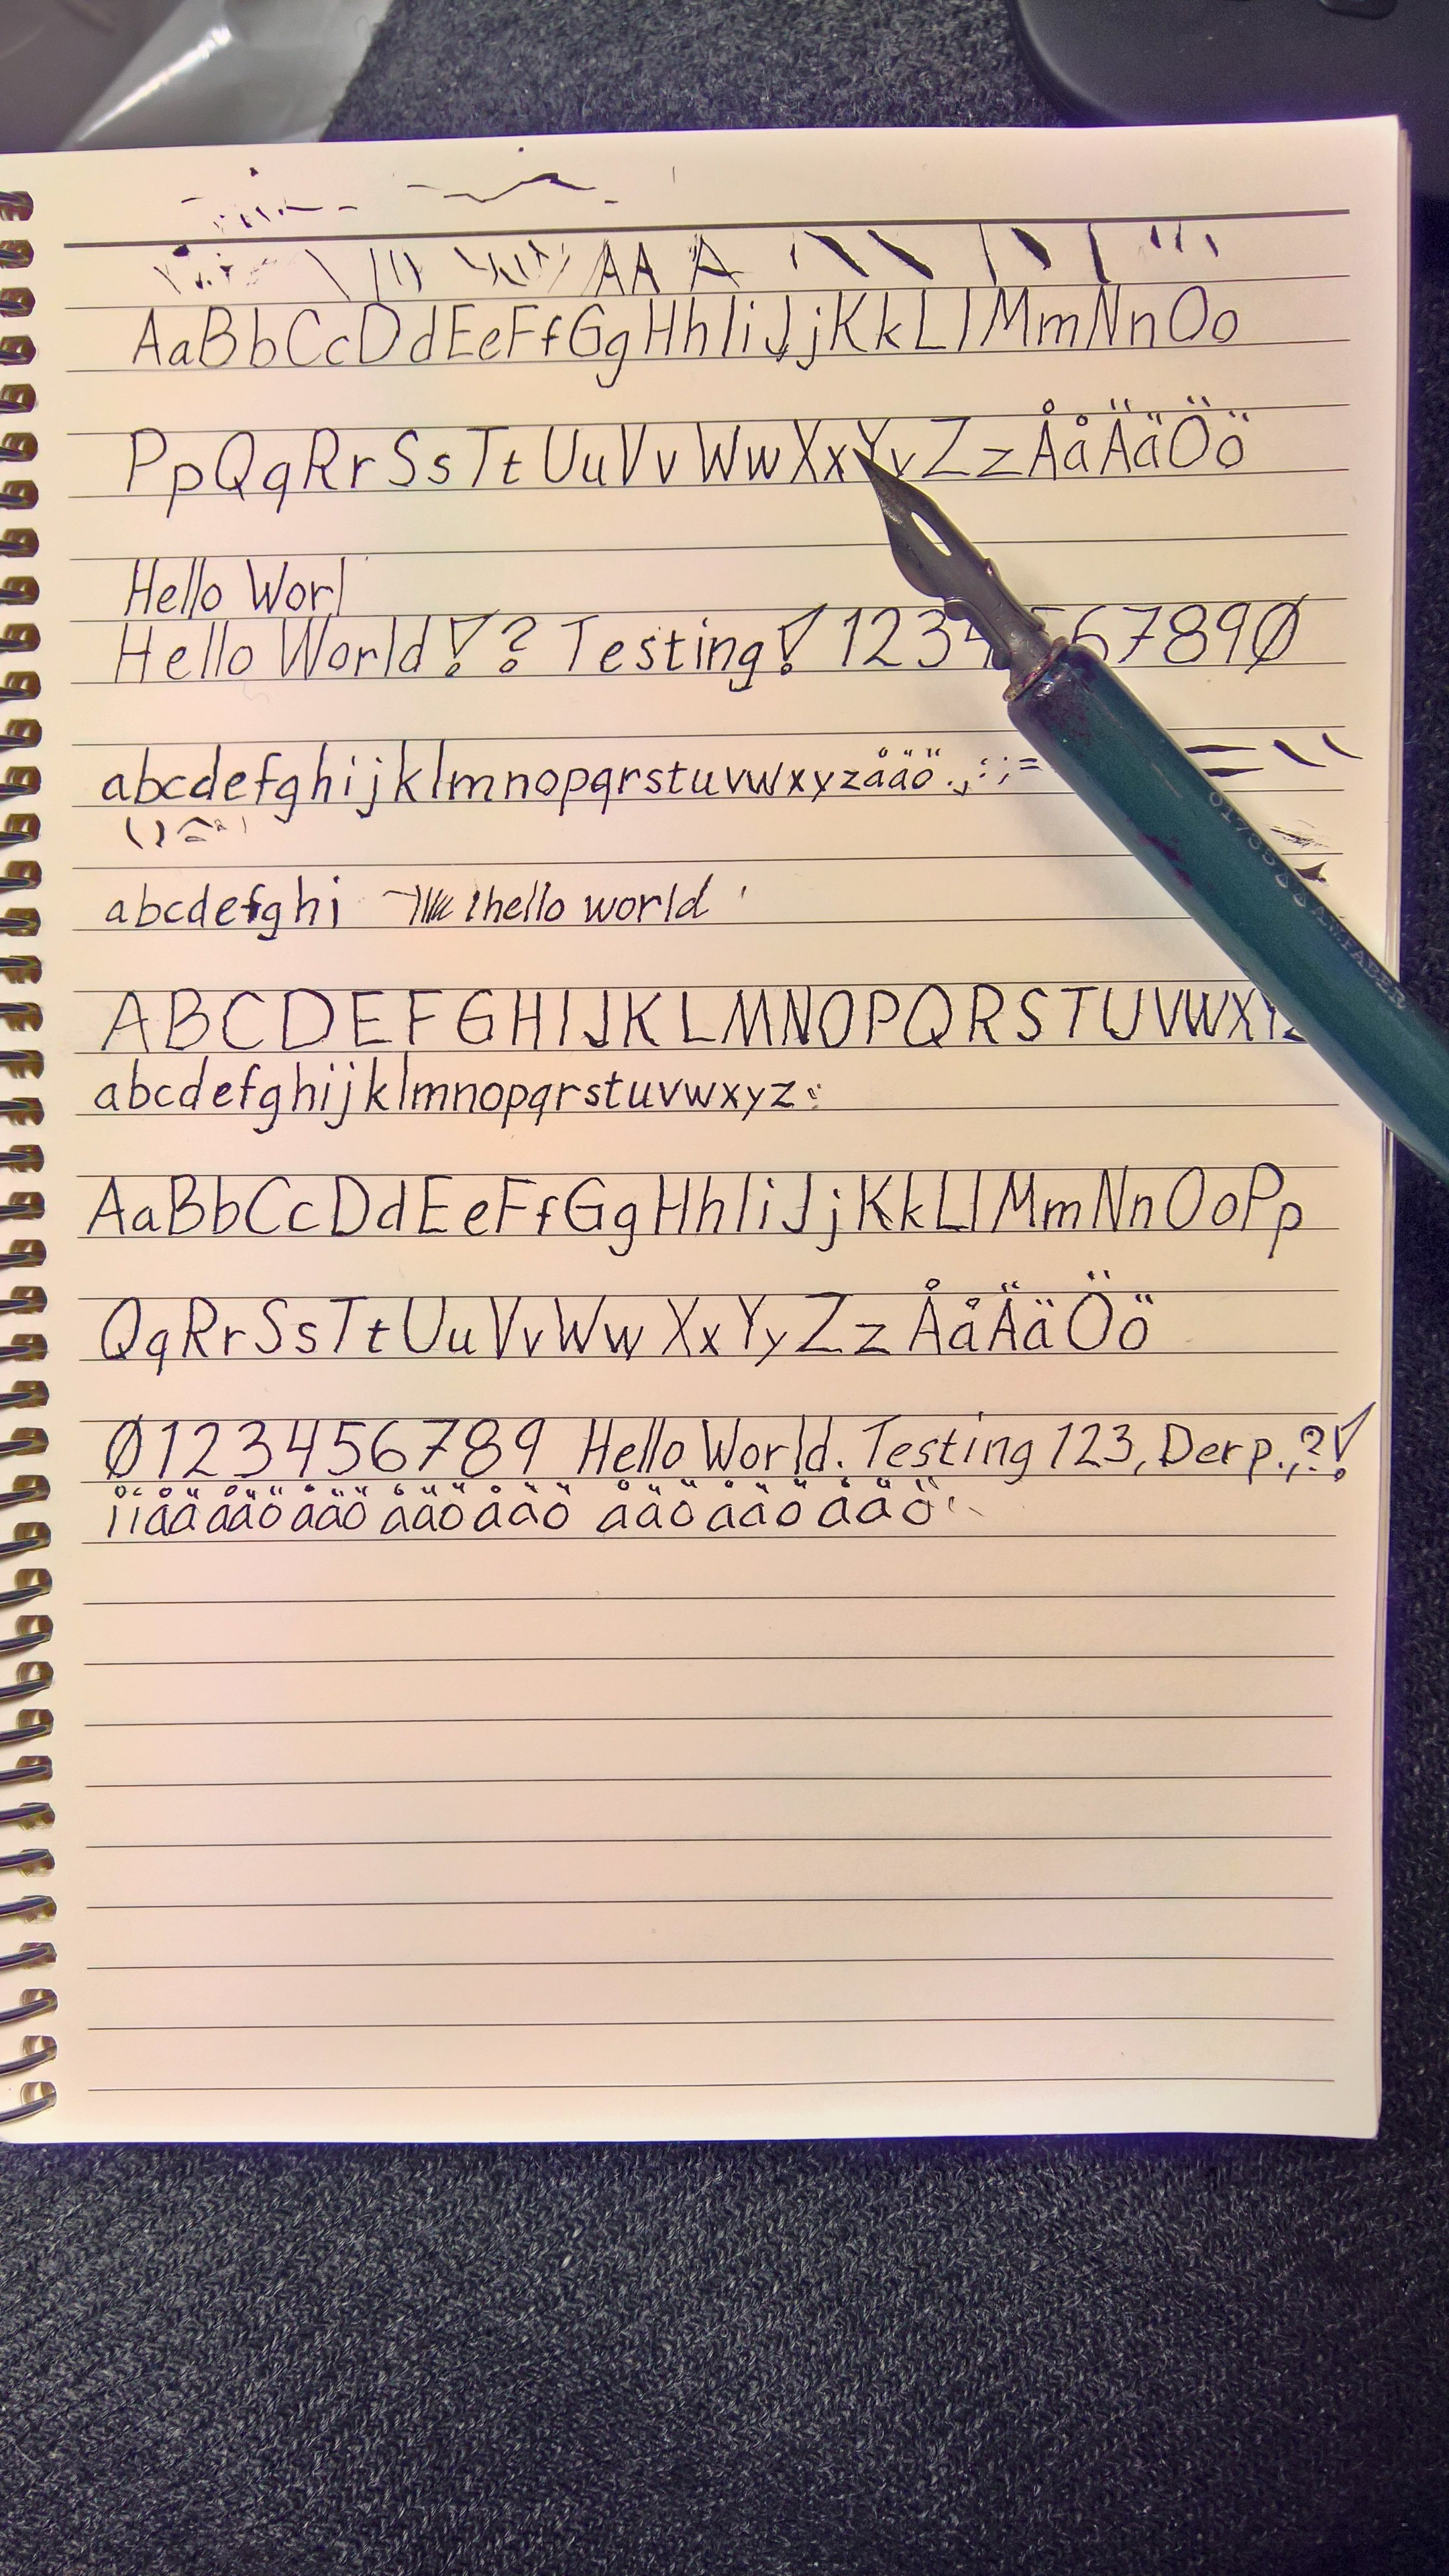 AA A
AaBbCcDdEeFfGgHhIiJjKkLlMmNnOo
PpQqRrSsTtUuVvWwXxYyZzÅåÄäÖö
Hello Worl
Hello World!? Testing! 1234 67890
abcdefghijklmnopqrstuvwxyzåäö.,:;=
abcdefghi hello world
ABCDEFGHIJKLMNOPQRSTUVWXYZ
abcdefghijklmnopqrstuvwxyz
AaBbCcDdEeFfGgHhIiJjKkLlMmNnOoPp
QqRrSsTtUuVvWwXxYyZzÅåÄäÖö
0123456789 Hello World. Testing 123, Derp.,?!
åäö åäö åäö åäö åäö åäö åäö
A.W.FABER